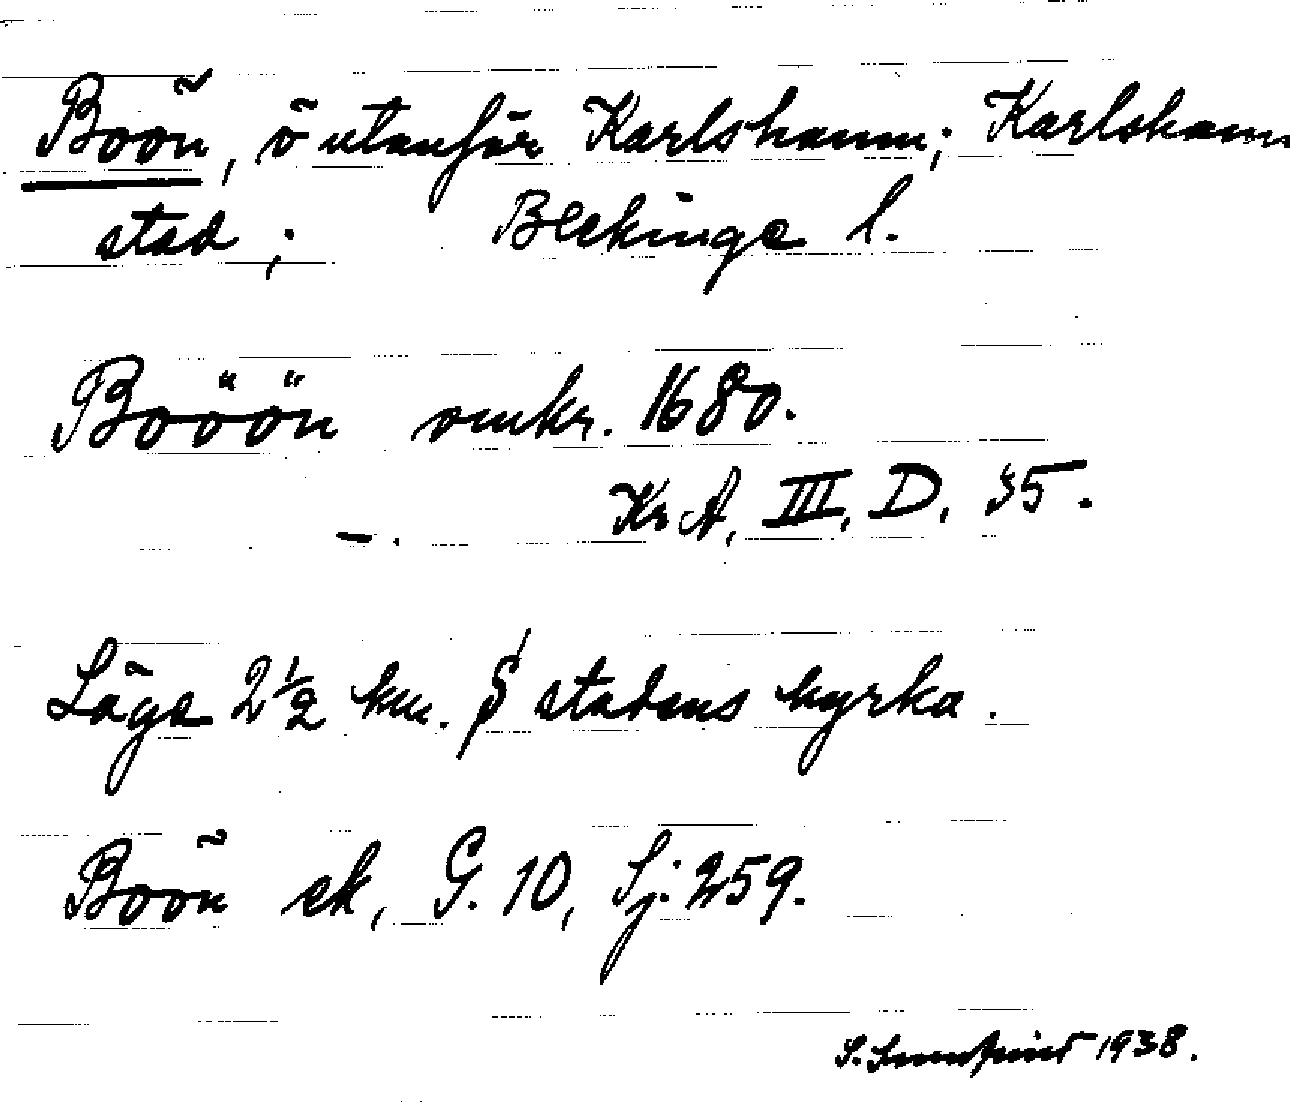 Boön, ö utanför Karlshamn; Karlshamn
stad; Blekinge l.
Booön omkr. 1680.
Kr A, III, D, 35.
Läge 2½ km. S stadens kyrka.
Boön ek, G. 10, Sj. 259.
1938.